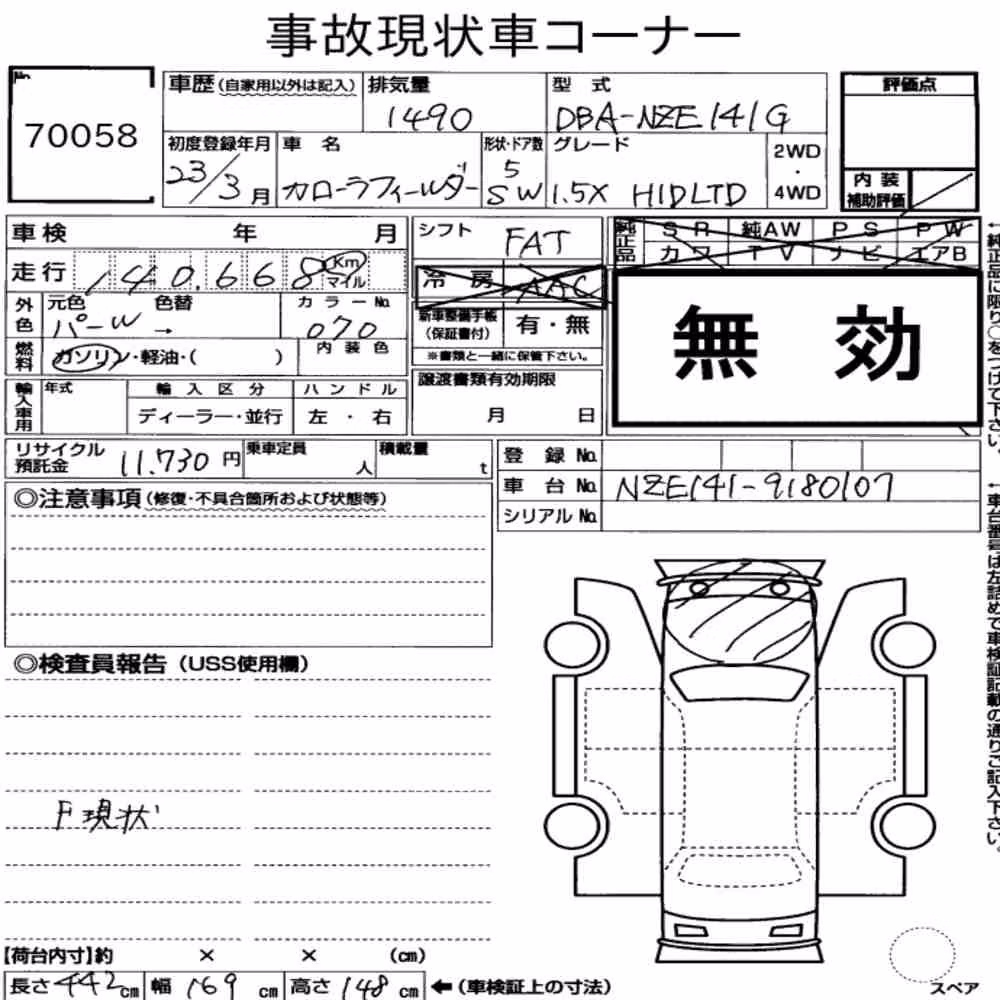 事故現状車コーナー
No.
70058
車歴 (自家用以外は記入)
排気量
1490
型式
DBA-NZE141G
評価点
内装
補助評価
初度登録年月
23/3月
車名
カローラフィールダー
形状・ドア数
5
SW
グレード
1.5X HIDLTD
2WD
・
4WD
車検 年 月
走行 140.668 Km
マイル
シフト
FAT
冷房 AAC
純正品
SR 純AW PS PW
カワ TV ナビ エアB
無効
外色
元色 パール
色替 →
カラーNo.
070
燃料
ガソリン・軽油・( )
内装色
新車整備手帳
(保証書付)
有・無
※書類と一緒に保管下さい。
輸入車用
年式
輸入区分
ディーラー・並行
ハンドル
左・右
譲渡書類有効期限
月 日
リサイクル
預託金
11.730円
乗車定員
人
積載量
t
登録No.
車台No. NZE141-9180107
シリアルNo.
◎注意事項 (修復・不具合箇所および状態等)
◎検査員報告 (USS使用欄)
F現状
【荷台内寸】約 × × (cm)
長さ 442cm 幅 169cm 高さ 148cm ←(車検証上の寸法)
スペア
←純正品に限り○をつけて下さい。
←車台番号は左詰めで車検証記載の通りご記入下さい。